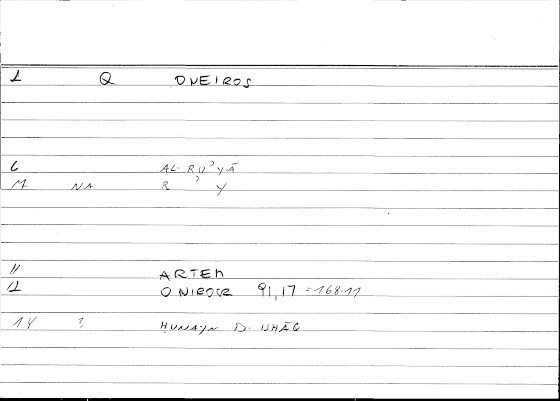 1 Q ONEIROS
6 AL-RUʾYĀ
M NA R ʾ Y
11 ARTEM
12 ONIROCR 91,17 = 168.11
14 ? ḤUNAYN B. ISḤĀQ